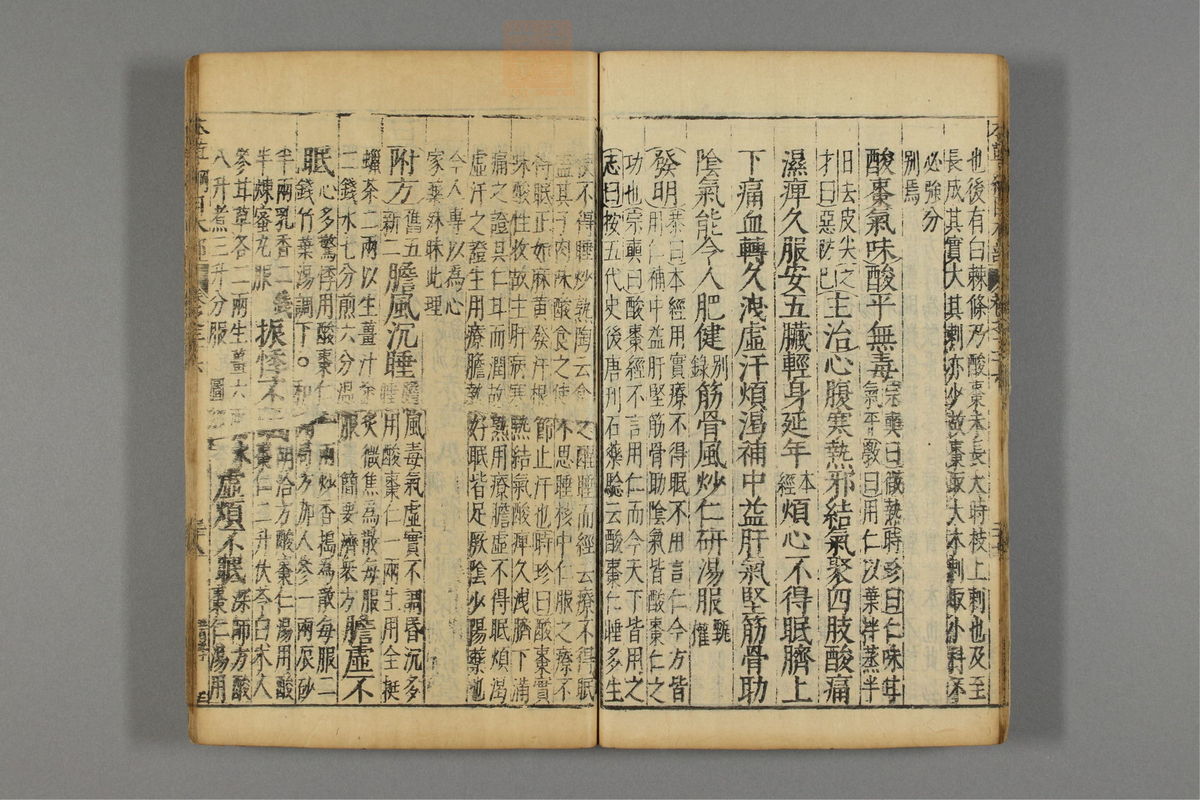 也後有白棘條乃酸棗未長大時枝上刺也及至
長成其實大其刺亦少故棗取大木刺取小科不
必強分
別焉
酸棗氣味酸平無毒宗奭曰微熱時珍曰仁味甘
氣平斅曰用仁以葉拌蒸半
日去皮尖之
才曰惡防己主治心腹寒熱邪結氣聚四肢酸痛
濕痺久服安五臟輕身延年本
經煩心不得眠臍上
下痛血轉久洩虛汗煩渴補中益肝氣堅筋骨助
陰氣能令人肥健別
錄筋骨風炒仁研湯服甄
權
發明恭曰本經用實療不得眠不用言仁今方皆
用仁補中益肝堅筋骨助陰氣皆酸棗仁之
功也宗奭曰酸棗經不言用仁而今天下皆用之
志曰按五代史後唐刊石藥驗云酸棗仁睡多生
使不得睡炒熟陶云食之醒睡而經云療不得眠
蓋其子肉味酸食之使不思睡核中仁服之療不
得眠正如麻黃發汗根節止汗也時珍曰酸棗實
味酸性收故主肝病寒熱結氣酸痺久洩臍下滿
痛之證其仁甘而潤故熟用療膽虛不得眠煩渴
虛汗之證生用療膽熱好眠皆足厥陰少陽藥也
今人專以為心
家藥殊昧此理
附方舊五
新二膽風沉睡膽風毒氣虛實不調昏沉多
睡用酸棗仁一兩生用全挺
蠟茶二兩以生薑汁塗炙微焦為散每服
二錢水七分煎六分溫服簡要濟眾方膽虛不
眠心多驚悸用酸棗仁一兩炒香搗為散每服二
錢竹葉湯調下和劑局方加人參一兩辰砂
半兩乳香二錢
半煉蜜丸服振悸不眠胡洽方酸棗仁湯用酸
棗仁二升茯苓白朮人
參甘草各二兩生薑六兩水
八升煮三升分服圖
虛煩不眠深師方酸
棗仁湯用